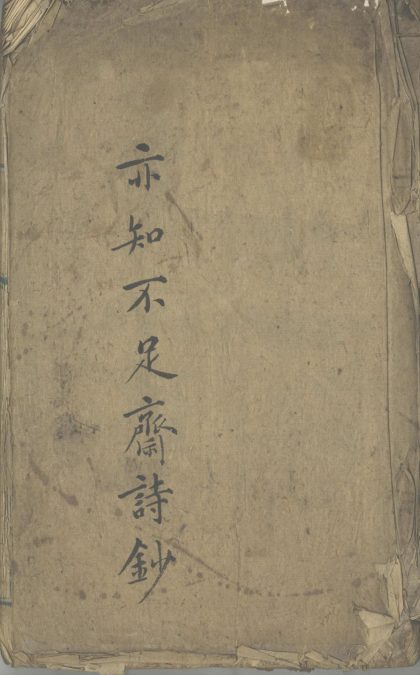 亦知不足齋詩鈔